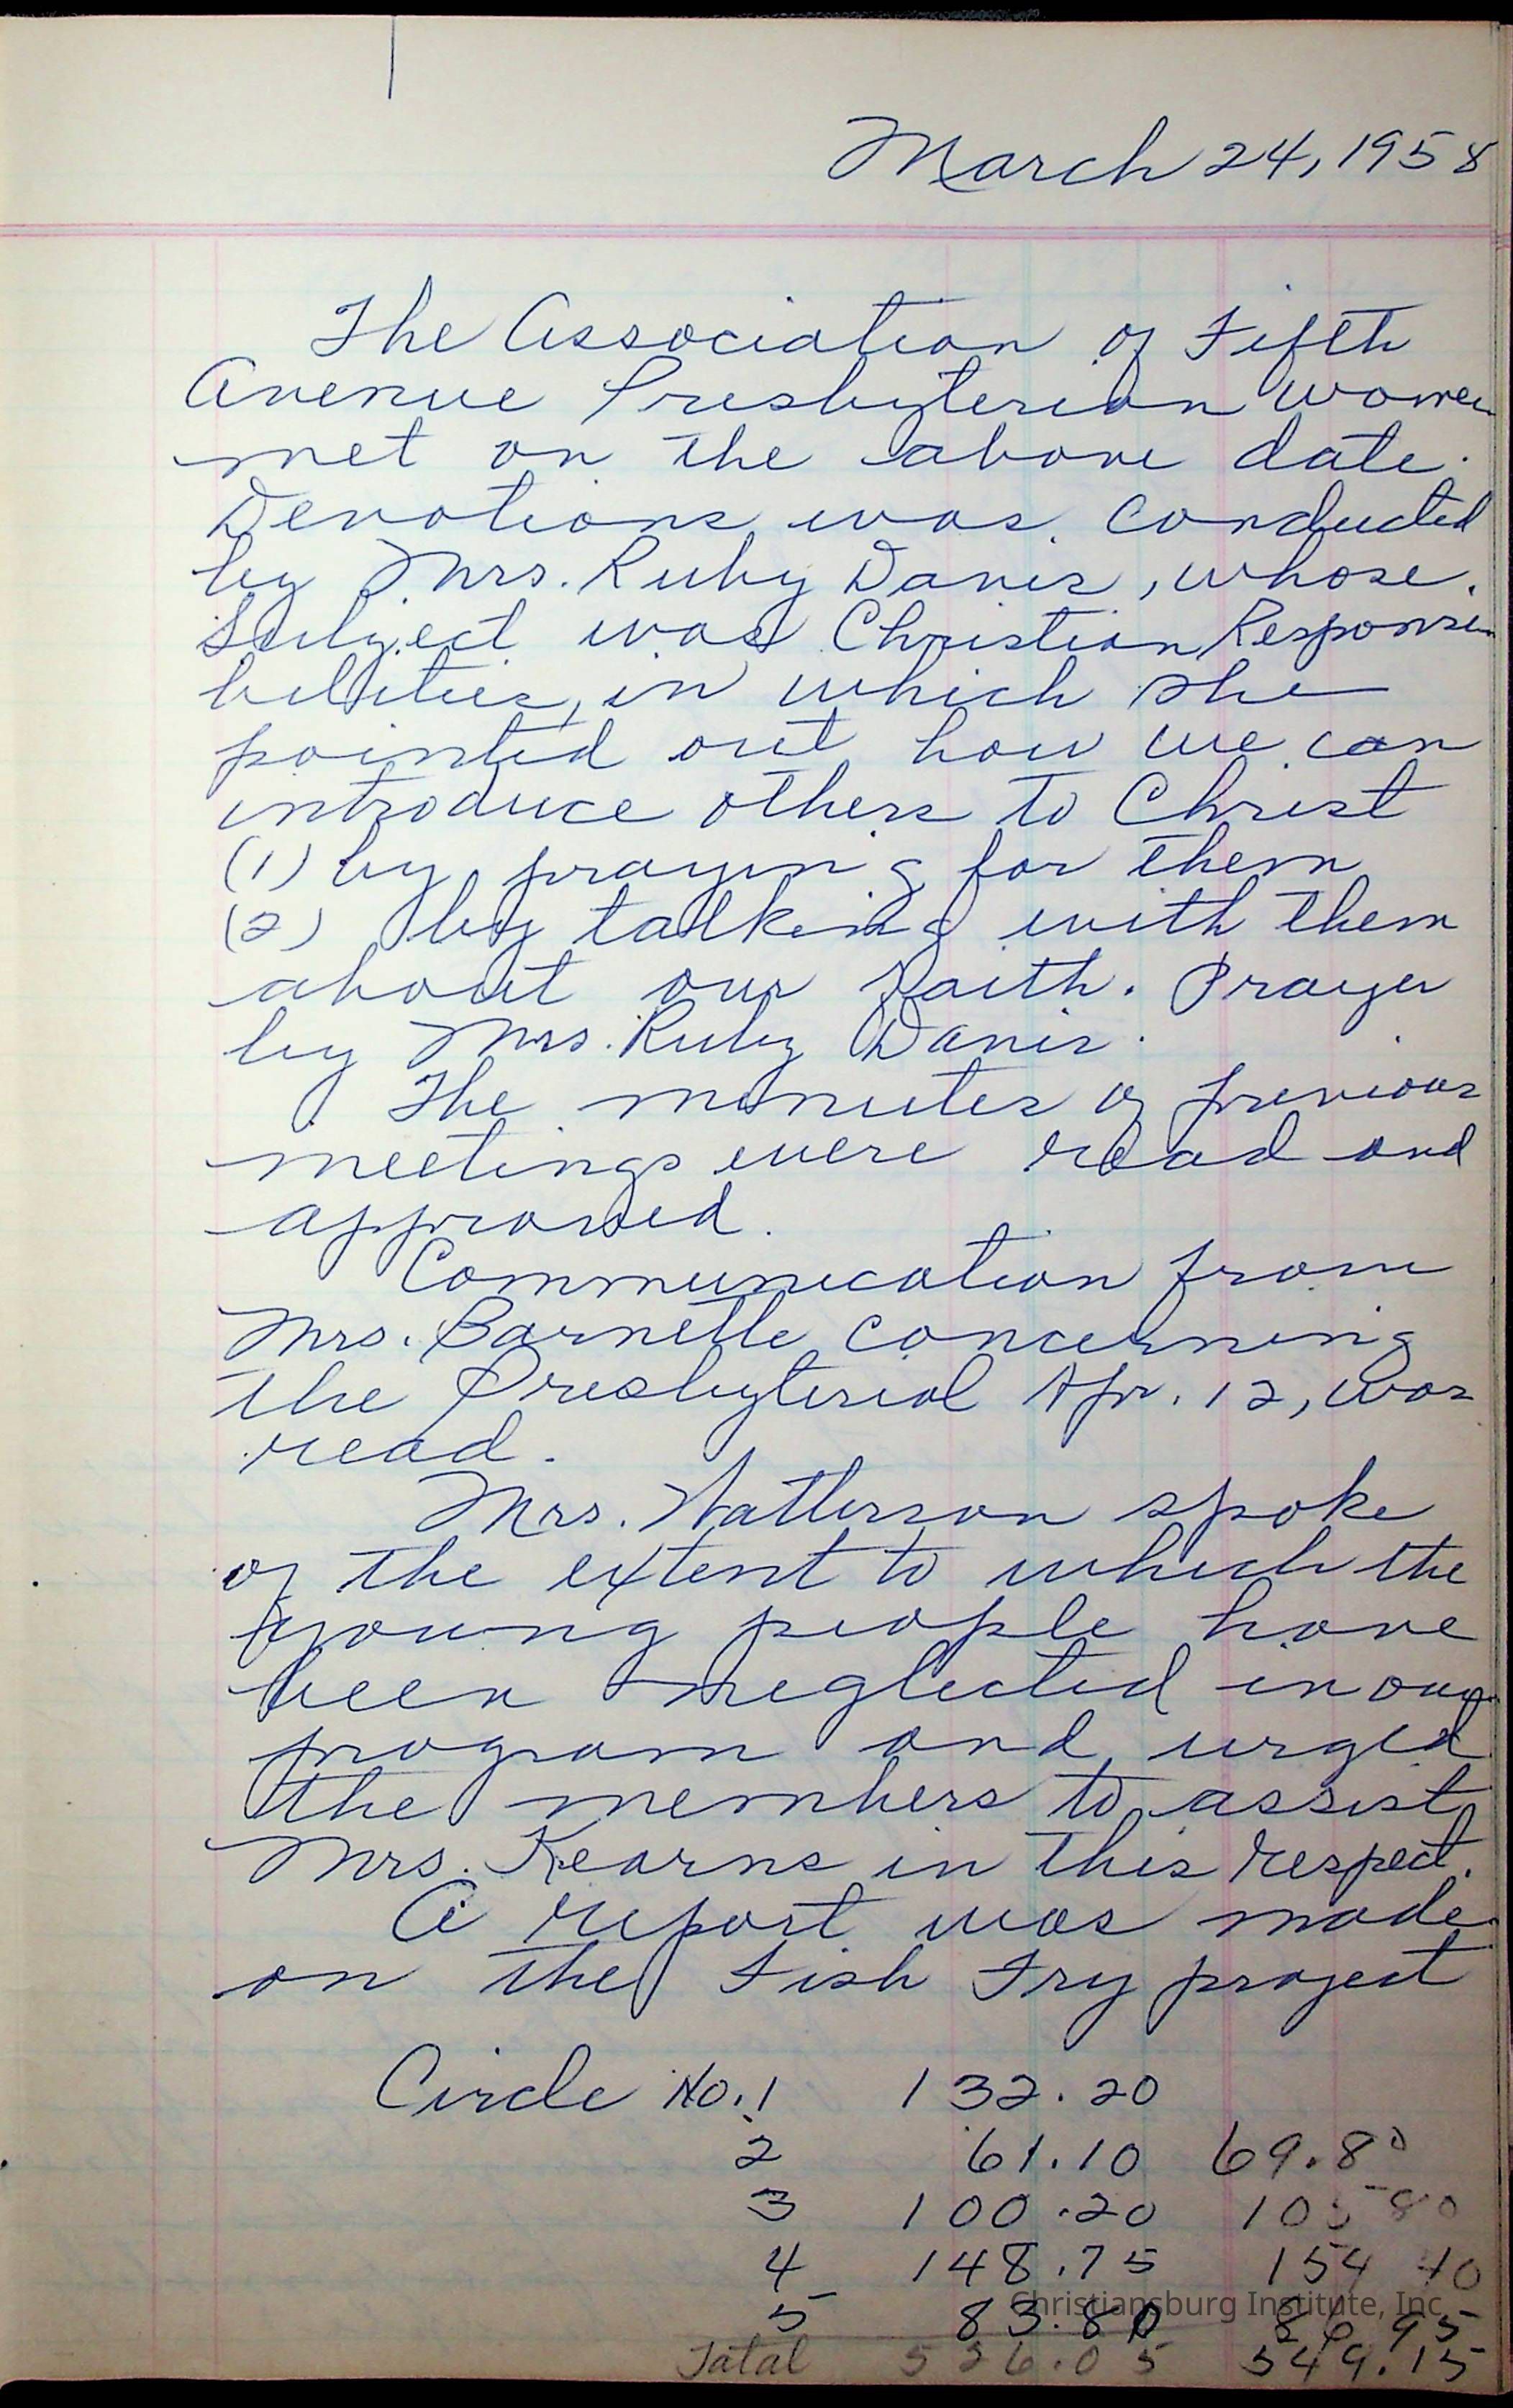 March 24, 1958
The Association of Fifth
Avenue Presbyterian Women
met on the above date.
Devotions was conducted
by Mrs. Ruby Davis, whose
Subject was Christian Responsi-
bilities, in which she
pointed out how we can
introduce others to Christ
(1) by praying for them
(2) by talking with them
about our Faith. Prayer
by Mrs. Ruby Davis.
The minutes of previous
meetings were read and
approved.
Communication from
Mrs. Barnette concerning
the Presbyterial Apr. 12, was
read.
Mrs. Patterson spoke
of the extent to which the
young people have
been neglected in our
program and urged
the members to assist
Mrs. Kearns in this respect.
A report was made
on the Fish Fry project
Circle No. 1 132.20
2 61.10 69.80
3 100.20 105 80
4 148.75 154 40
5 83.80 86.95
Total 526.05 549.15
Christiansburg Institute, Inc